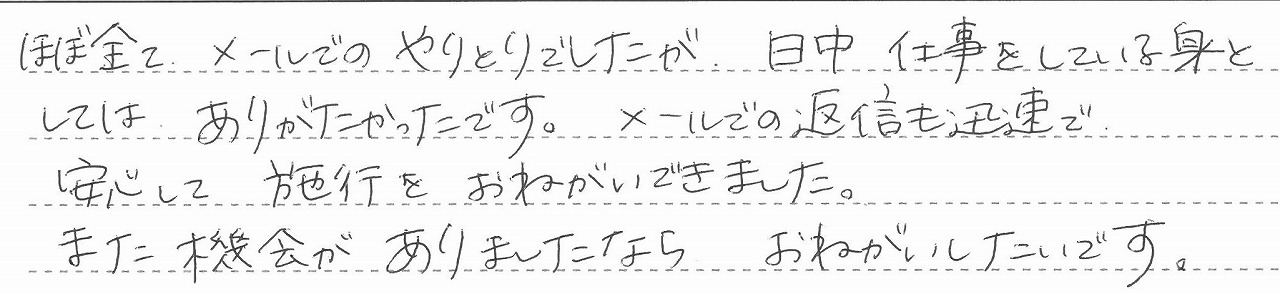 ほぼ全て メールでの やりとりでしたが 日中 仕事をしている身と
しては ありがたかったです。 メールでの返信も迅速で
安心して 施行を おねがいできました。
また機会が ありましたなら おねがいしたいです。